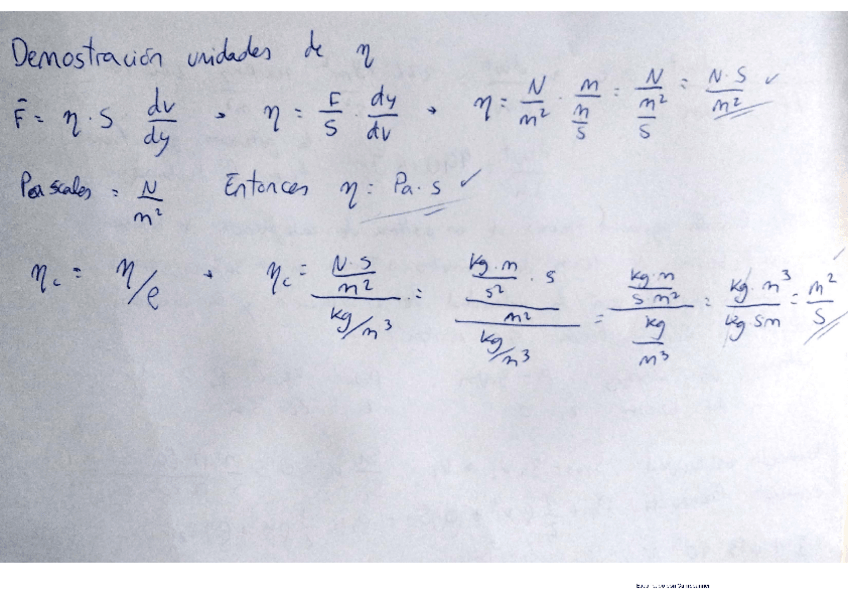 Demostración unidades de η
F̄ = η · S dv/dy → η = F/S · dy/dv → η = N/m² · m/(m/s) = (N/m²)/s = N·s/m² ✓
Pascales = N/m² Entonces η = Pa·s ✓
η_c = η/ρ → η_c = (N·s/m²)/(kg/m³) = ((kg·m/s² · s)/m²)/(kg/m³) = (kg·m/s m²)/(kg/m³) = kg·m³/kg s m = m²/s ✓